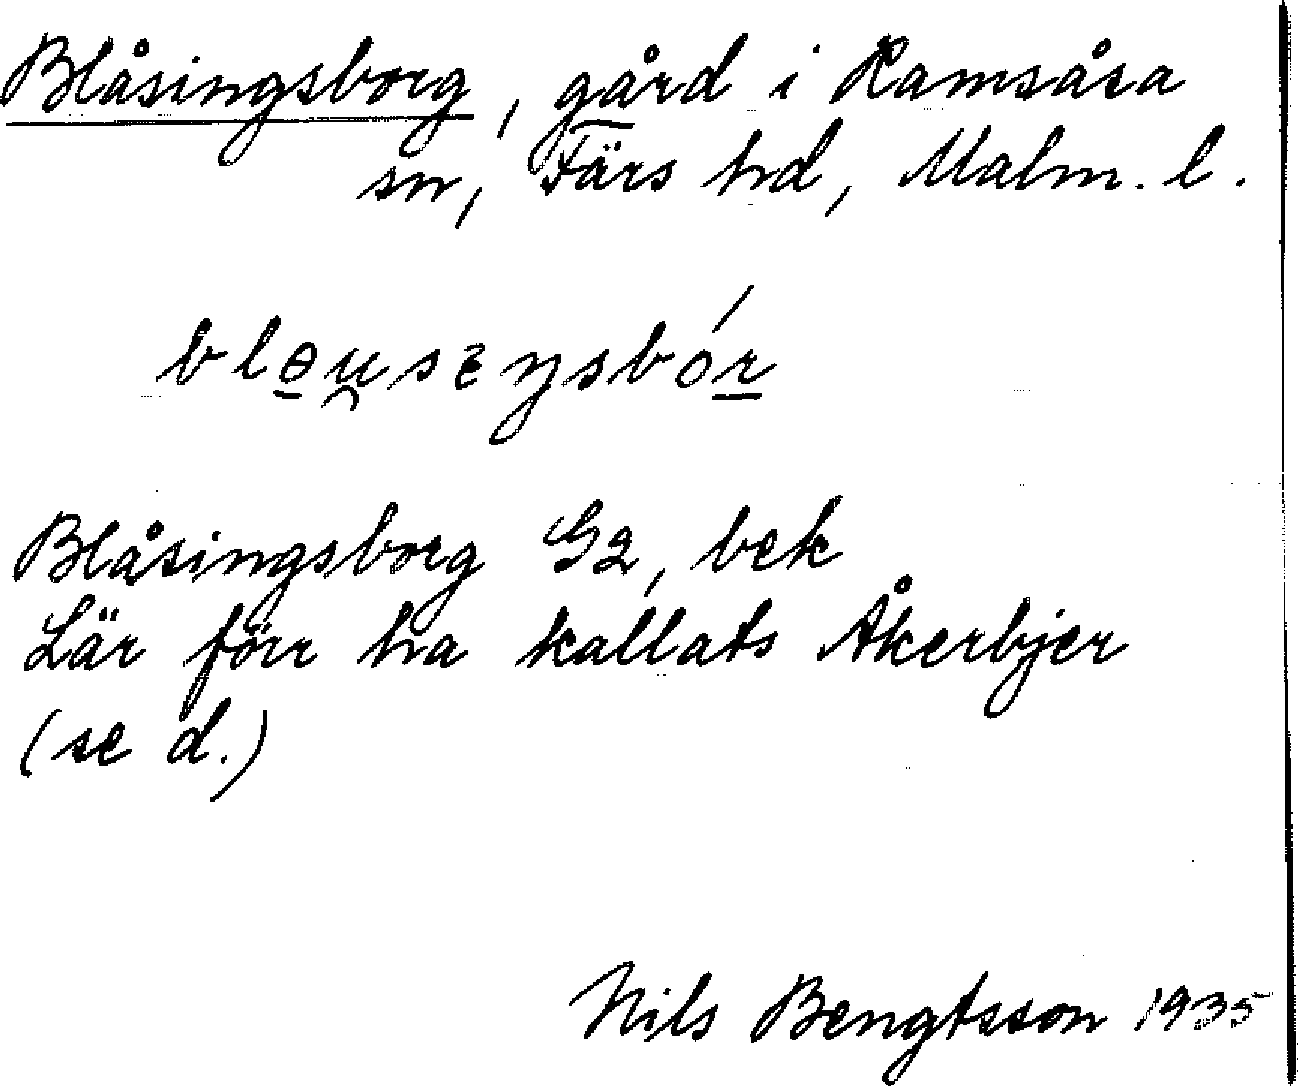 Blåsingsborg, gård i Ramsåsa
sn, Färs hd, Malm. l.
blɵu̯sɛŋsbór
Blåsingsborg G2, bek
Lär förr ha kallats Åkerbjer
(se d.)
Nils Bengtsson 1935